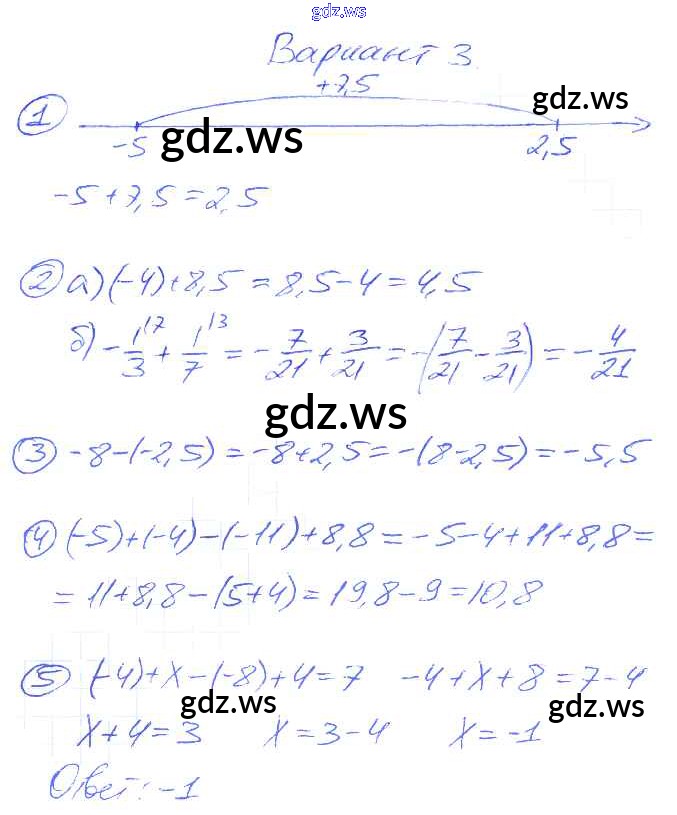 gdz.ws
Вариант 3.
+7,5
gdz.ws
1
gdz.ws
-5 2,5
-5+7,5=2,5
2 а) (-4)+8,5=8,5-4=4,5
б) -1/3 \7 + 1/7 \3 = -7/21 + 3/21 = -(7/21 - 3/21) = -4/21
gdz.ws
3 -8-(-2,5)=-8+2,5=-(8-2,5)=-5,5
4 (-5)+(-4)-(-11)+8,8=-5-4+11+8,8=
=11+8,8-(5+4)=19,8-9=10,8
5 (-4)+x-(-8)+4=7 -4+x+8=7-4
gdz.ws gdz.ws
x+4=3 x=3-4 x=-1
Ответ: -1